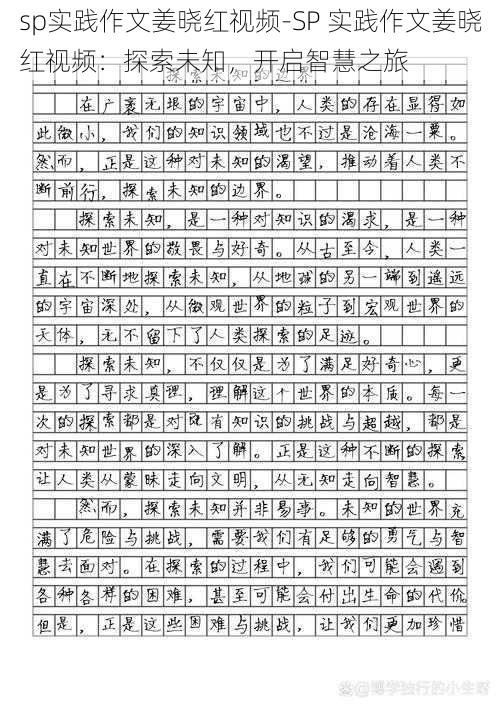 sp实践作文姜晓红视频-SP 实践作文姜晓
红视频：探索未知，开启智慧之旅
探索未知的边界
在广袤无垠的宇宙中，人类的存在显得如
此微小，我们的知识领域也不过是沧海一粟。
然而，正是这种对未知的渴望，推动着人类不
断前行，探索未知的边界。
探索未知，是一种对知识的渴求，是一种
对未知世界的敬畏与好奇。从古至今，人类一
直在不断地探索未知，从地球的另一端到遥远
的宇宙深处，从微观世界的粒子到宏观世界的
天体，无不留下了人类探索的足迹。
探索未知，不仅仅是为了满足好奇心，更
是为了寻求真理，理解这个世界的本质。每一
次的探索都是对既有知识的挑战与超越，都是
对未知世界的深入了解。正是这种不断的探索
让人类从蒙昧走向文明，从无知走向智慧。
然而，探索未知并非易事。未知的世界充
满了危险与挑战，需要我们有足够的勇气与智
慧去面对。在探索的过程中，我们可能会遇到
各种各样的困难，甚至可能会付出生命的代价。
但是，正是这些困难与挑战，让我们更加珍惜
@博学独行的小生呀